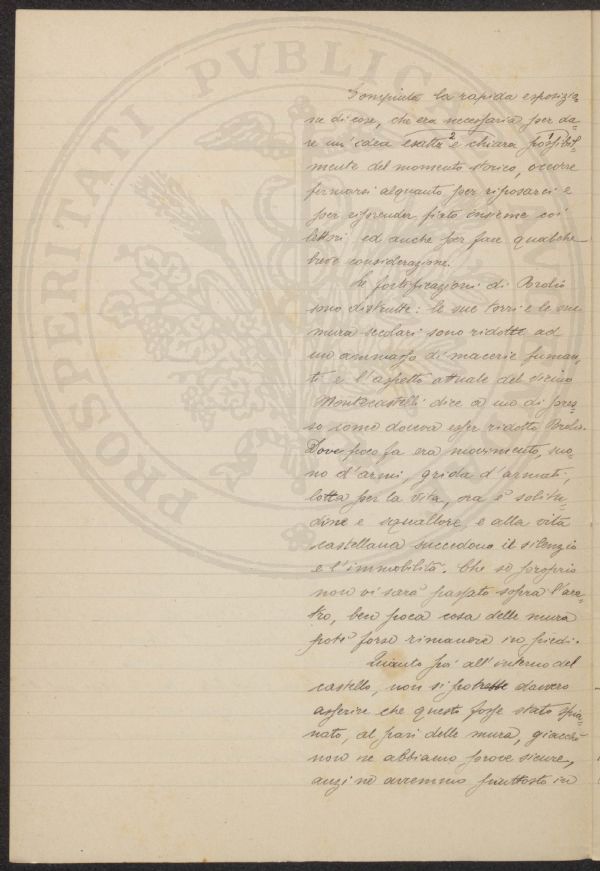 PROSPERITATI PVBLICAE
Compiuta la rapida esposizio-
ne di cose, che era necessaria per da-
re un' idea esatta 2 e chiara 1 possibil-
mente del momento storico, occorre
fermarci alquanto per riposarci e
per riprender fiato insieme coi
lettori ed anche per fare qualche
breve considerazione.
Le fortificazioni di Brolio
sono distrutte: le sue torri e le sue
mura secolari sono ridotte ad
un ammasso di macerie fuman-
ti e l'aspetto attuale del vicino
Montecastelli dice a un di pres-
so come doveva esser ridotto Brolio.
Dove poco fa era movimento, suo-
no d'armi, grida d'armati,
lotta per la vita, ora è solitu-
dine e squallore, e alla vita
castellana succedono il silenzio
e l'immobilità. Che se proprio
non vi sarà passato sopra l'ara-
tro, ben poca cosa delle mura
potè forse rimanere in piedi.
Quanto poi all'interno del
castello, non si potrebbe davvero
asserire che questo fosse stato spia-
nato, al pari delle mura, giacchè
non ne abbiamo prove sicure,
anzi ne avremmo piuttosto in